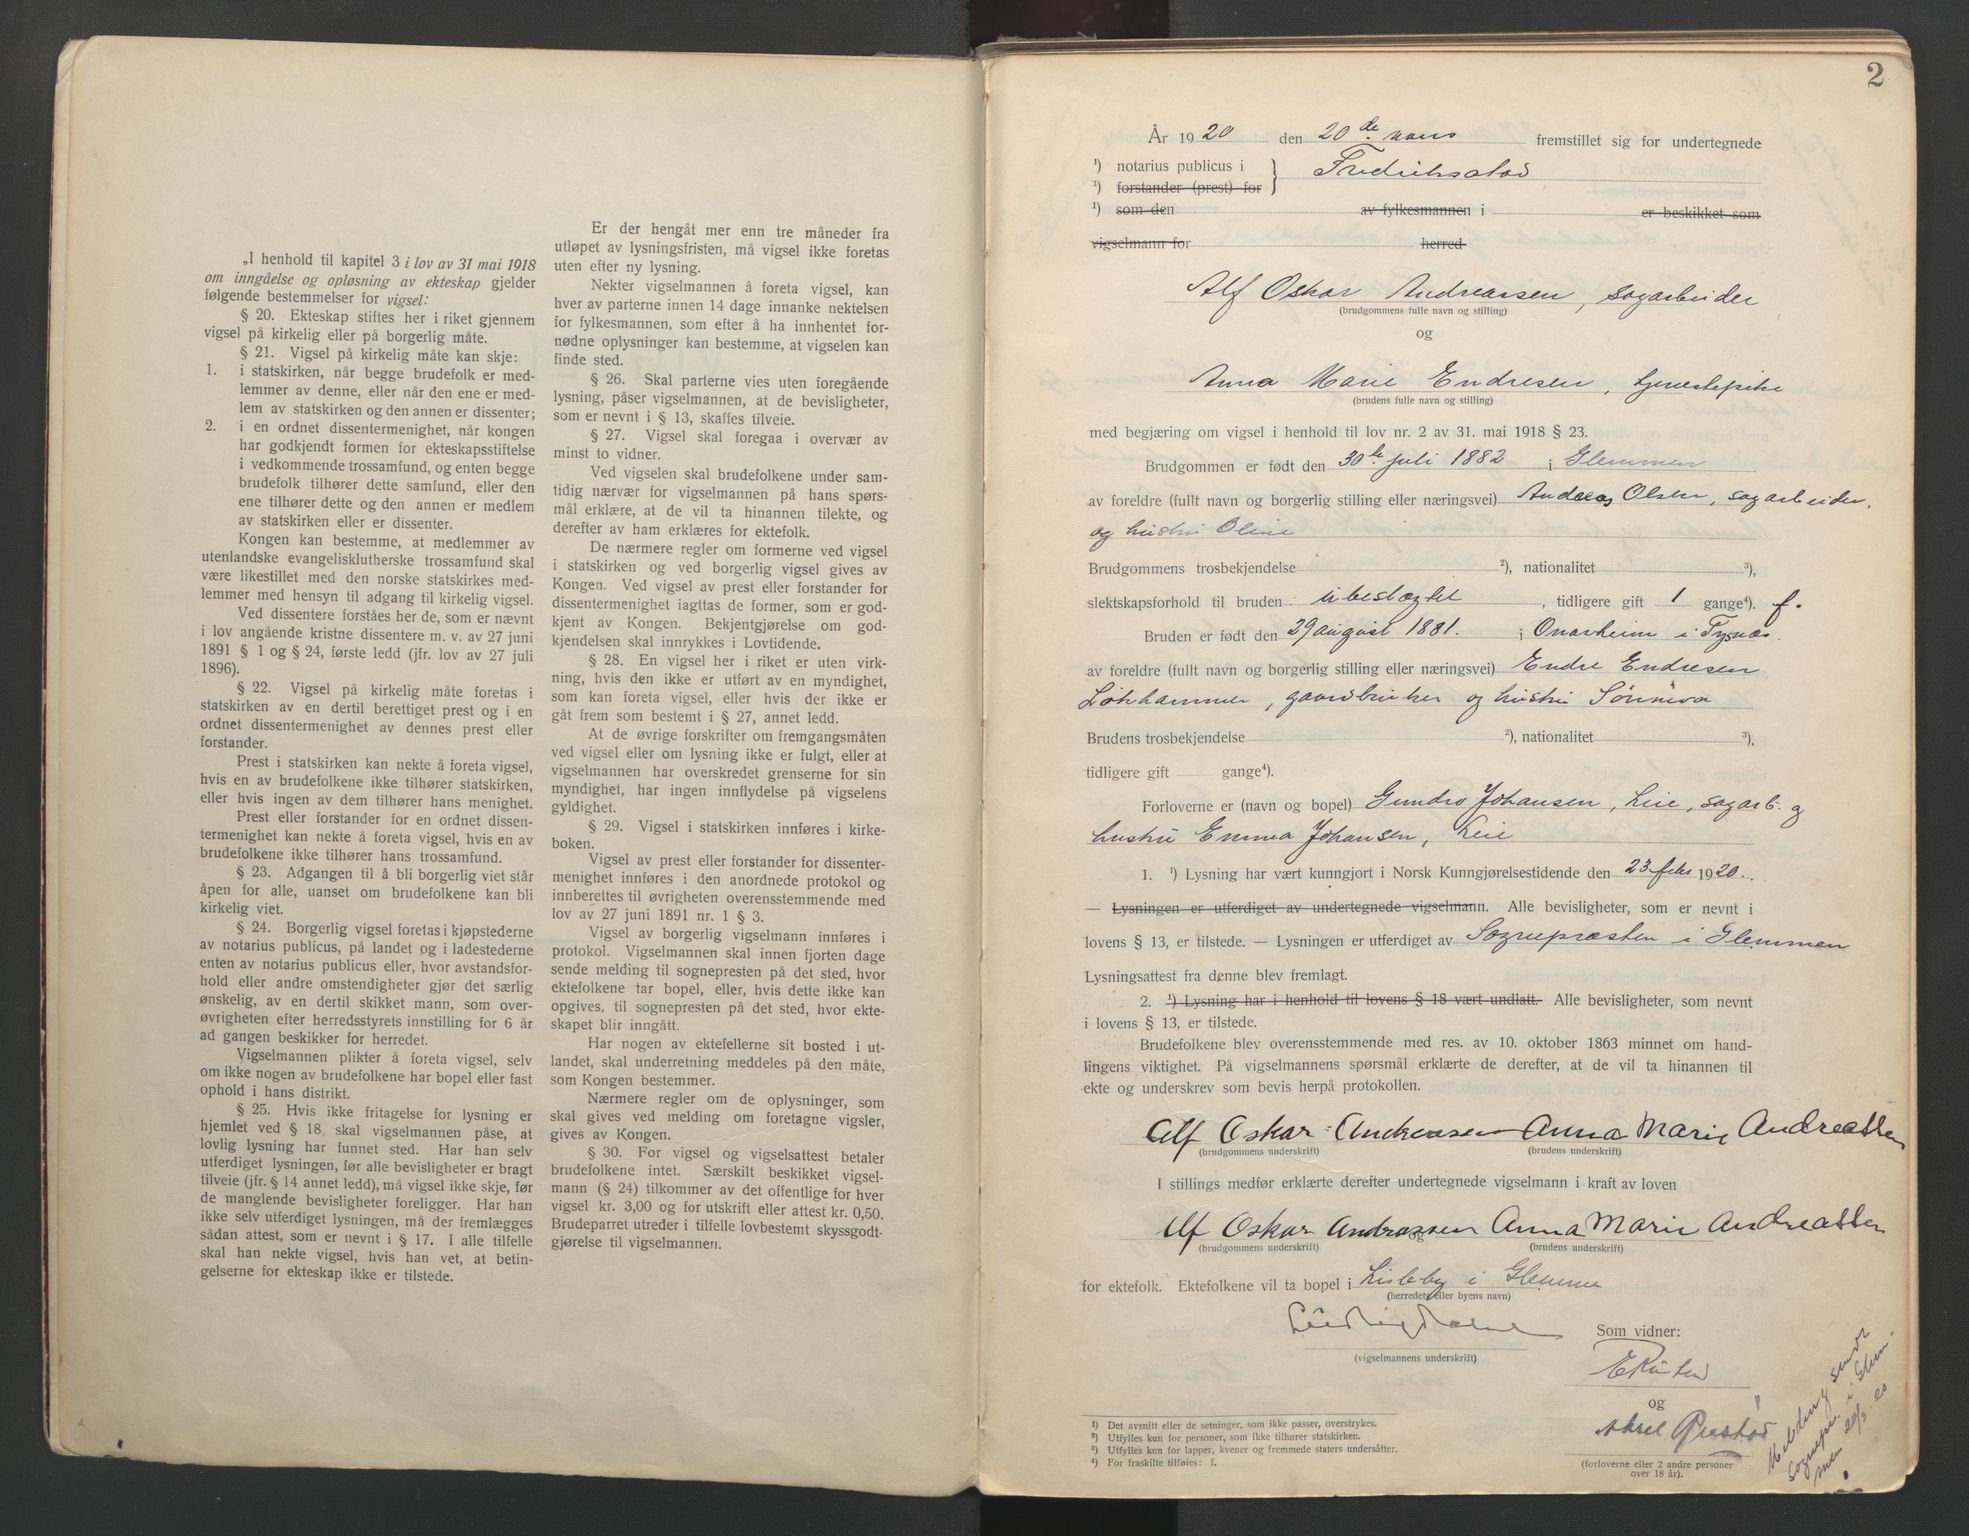 „I henhold til kapitel 3 i lov av 31 mai 1918
om inngåelse og opløsning av ekteskap gjelder
følgende bestemmelser for vigsel:
§ 20. Ekteskap stiftes her i riket gjennem
vigsel på kirkelig eller på borgerlig måte.
§ 21. Vigsel på kirkelig måte kan skje:
1. i statskirken, når begge brudefolk er med-
lemmer av denne, eller når den ene er med-
lem av statskirken og den annen er dissenter;
2. i en ordnet dissentermenighet, når kongen
har godkjendt formen for ekteskapsstiftelse
i vedkommende trossamfund, og enten begge
brudefolk tilhører dette samfund, eller den
ene tilhører dette og den annen er medlem
av statskirken eller er dissenter.
Kongen kan bestemme, at medlemmer av
utenlandske evangelisklutherske trossamfund skal
være likestillet med den norske statskirkes med-
lemmer med hensyn til adgang til kirkelig vigsel.
Ved dissentere forståes her de, som er nævnt
i lov angående kristne dissentere m. v. av 27 juni
1891 § 1 og § 24, første ledd (jfr. lov av 27 juli
1896).
§ 22. Vigsel på kirkelig måte foretas i
statskirken av en dertil berettiget prest og i en
ordnet dissentermenighet av dennes prest eller
forstander.
Prest i statskirken kan nekte å foreta vigsel,
hvis en av brudefolkene ikke tilhører statskirken,
eller hvis ingen av dem tilhører hans menighet.
Prest eller forstander for en ordnet dissen-
termenighet kan nekte å foreta vigsel, hvis en av
brudefolkene ikke tilhører hans trossamfund.
§ 23. Adgangen til å bli borgerlig viet står
åpen for alle, uanset om brudefolkene kan bli
kirkelig viet.
§ 24. Borgerlig vigsel foretas i kjøpstederne
av notarius publicus, på landet og i ladestederne
enten av notarius publicus eller, hvor avstandsfor-
hold eller andre omstendigheter gjør det særlig
ønskelig, av en dertil skikket mann, som over-
øvrigheten efter herredsstyrets innstilling for 6 år
ad gangen beskikker for herredet.
Vigselmannen plikter å foreta vigsel, selv
om ikke nogen av brudefolkene har bopel eller fast
ophold i hans distrikt.
§ 25. Hvis ikke fritagelse for lysning er
hjemlet ved § 18, skal vigselmannen påse, at
lovlig lysning har funnet sted. Har han selv
utferdiget lysningen, før alle bevisligheter er bragt
tilveie (jfr. § 14 annet ledd), må vigsel ikke skje, før
de manglende bevisligheter foreligger. Har han
ikke selv utferdiget lysningen, må der fremlægges
sådan attest, som er nevnt i § 17. I alle tilfelle
skal han nekte vigsel, hvis han vet, at betin-
gelserne for ekteskap ikke er tilstede.
Er der hengåt mer enn tre måneder fra
utløpet av lysningsfristen, må vigsel ikke foretas
uten efter ny lysning.
Nekter vigselmannen å foreta vigsel, kan
hver av parterne innen 14 dage innanke nektelsen
for fylkesmannen, som efter å ha innhentet for-
nødne oplysninger kan bestemme, at vigselen kan
finde sted.
§ 26. Skal parterne vies uten foregående
lysning, påser vigselmannen, at de bevisligheter,
som er nevnt i § 13, skaffes tilveie.
§ 27. Vigsel skal foregaa i overvær av
minst to vidner.
Ved vigselen skal brudefolkene under sam-
tidig nærvær for vigselmannen på hans spørs-
mål erklære, at de vil ta hinannen tilekte, og
derefter av ham erklæres for ektefolk.
De nærmere regler om formerne ved vigsel
i statskirken og ved borgerlig vigsel gives av
Kongen. Ved vigsel av prest eller forstander for
dissentermenighet iagttas de former, som er god-
kjent av Kongen. Bekjentgjørelse om god-
kjendelsen skal innrykkes i Lovtidende.
§ 28. En vigsel her i riket er uten virk-
ning, hvis den ikke er utført av en myndighet,
som kan foreta vigsel, eller hvis der ikke er
gåt frem som bestemt i § 27, annet ledd.
At de øvrige forskrifter om fremgangsmåten
ved vigsel eller om lysning ikke er fulgt, eller at
vigselmannen har overskredet grenserne for sin
myndighet, har ingen innflydelse på vigselens
gyldighet.
§ 29. Vigsel i statskirken innføres i kirke-
boken.
Vigsel av prest eller forstander for dissenter-
menighet innføres i den anordnede protokol og
innberettes til øvrigheten overensstemmende med
lov av 27 juni 1891 nr. 1 § 3.
Vigsel av borgerlig vigselmann innføres i
protokol. Vigselmannen skal innen fjorten dage
sende melding til sognepresten på det sted, hvor
ektefolkene tar bopel, eller, hvis dette ikke kan
opgives, til sognepresten på det sted, hvor ekte-
skapet blir inngått.
Har nogen av ektefellerne sit bosted i ut-
landet, skal underretning meddeles på den måte,
som Kongen bestemmer.
Nærmere regler om de oplysninger, som
skal gives ved melding om foretagne vigsler,
gives av Kongen.
§ 30. For vigsel og vigselsattest betaler
brudefolkene intet. Særskilt beskikket vigsel-
mann (§ 24) tilkommer av det offentlige for hver
vigsel kr. 3,00 og for utskrift eller attest kr. 0,50.
Brudeparret utreder i tilfelle lovbestemt skyssgodt-
gjørelse til vigselmannen.
2
År 1920 den 20de mars fremstillet sig for undertegnede
¹) notarius publicus i Fredriksstad
¹) forstander (prest) for
¹) som den av fylkesmannen i er beskikket som
vigselmann for herred
Alf Oskar Andreassen, sagarbeider
(brudgommens fulle navn og stilling)
og
Anna Marie Endresen, tjenestepike
(brudens fulle navn og stilling)
med begjæring om vigsel i henhold til lov nr. 2 av 31. mai 1918 § 23.
Brudgommen er født den 30te juli 1882 i Glemmen
av foreldre (fullt navn og borgerlig stilling eller næringsvei) Andreas Olsen, sagarbeider,
og hustru Oline
Brudgommens trosbekjendelse ²), nationalitet ³),
slektskapsforhold til bruden ubeslægtet, tidligere gift 1 gange⁴). f.
Bruden er født den 29 august 1881. i Onarheim i Tysnæs.
av foreldre (fullt navn og borgerlig stilling eller næringsvei) Endre Endresen
Løkhammer, gaardbruker og hustru Sønniva
Brudens trosbekjendelse ²), nationalitet ³),
tidligere gift gange⁴).
Forloverne er (navn og bopel) Gundro Johansen, Leie, sagarb. og
hustru Emma Johansen, Leie
1. ¹) Lysning har vært kunngjort i Norsk Kunngjørelsestidende den 23 febr 1920.
— Lysningen er utferdiget av undertegnede vigselmann. Alle bevisligheter, som er nevnt i
lovens § 13, er tilstede. — Lysningen er utferdiget av Sognepræsten i Glemmen
Lysningsattest fra denne blev fremlagt.
2. ¹) Lysning har i henhold til lovens § 18 vært undlatt. Alle bevisligheter, som nevnt
i lovens § 13, er tilstede.
Brudefolkene blev overensstemmende med res. av 10. oktober 1863 minnet om hand-
lingens viktighet. På vigselmannens spørsmål erklærte de derefter, at de vil ta hinannen til
ekte og underskrev som bevis herpå protokollen.
Alf Oskar Andreassen Anna Marie Andreassen
(brudgommens underskrift) (brudens underskrift)
I stillings medfør erklærte derefter undertegnede vigselmann i kraft av loven
Alf Oskar Andreassen Anna Marie Andreassen
(brudgommens underskrift) og (brudens underskrift)
for ektefolk. Ektefolkene vil ta bopel i Lisleby i Glemme
(herredets eller byens navn)
Som vidner:
(vigselmannens underskrift)
og
Aksel
(forloverne eller 2 andre personer
over 18 år).
¹) Det avsnitt eller de setninger, som ikke passer, overstrykes.
²) Utfylles kun for personer, som ikke tilhører statskirken.
³) Utfylles kun for lapper, kvener og fremmede staters undersåtter.
⁴) For fraskilte tilføies: f.
Melding sendt
sognepr. i Glem-
men 20/3 20